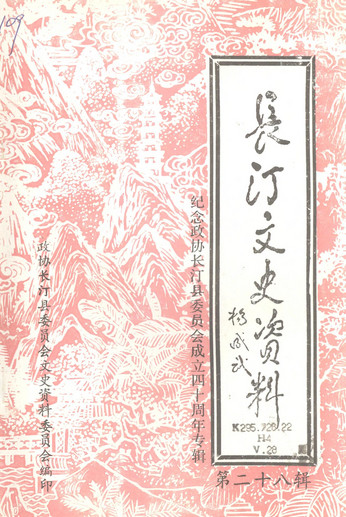 109
长汀文史资料
杨成武
K295.728.22
H4
V.28
第二十八辑
纪念政协长汀县委员会成立四十周年专辑
政协长汀县委员会文史资料委员会编印